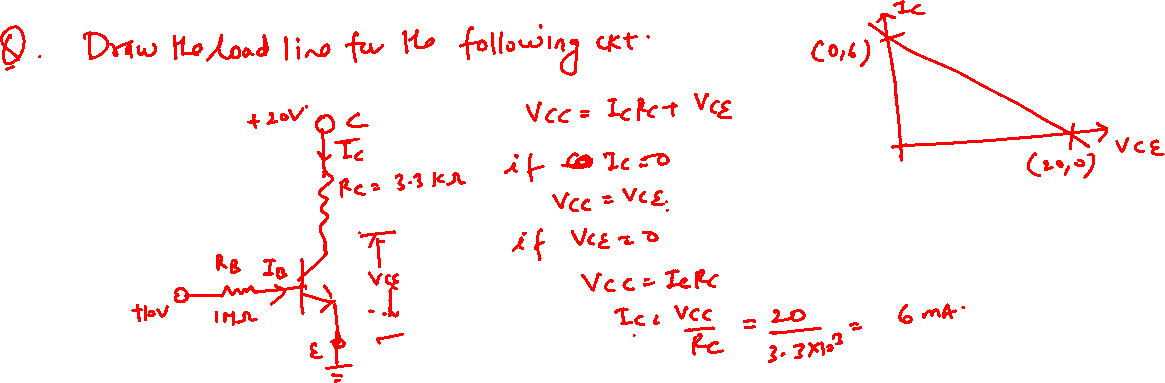 Q. Draw the load line for the following ckt.
+20V
C
IC
RC = 3.3 KΩ
RB
IB
+10V
1MΩ
VCE
E
VCC = ICRC + VCE
if IC = 0
VCC = VCE.
if VCE = 0
VCC = ICRC
IC = VCC / RC = 20 / 3.3×10³ = 6 mA.
IC
(0,6)
VCE
(20,0)